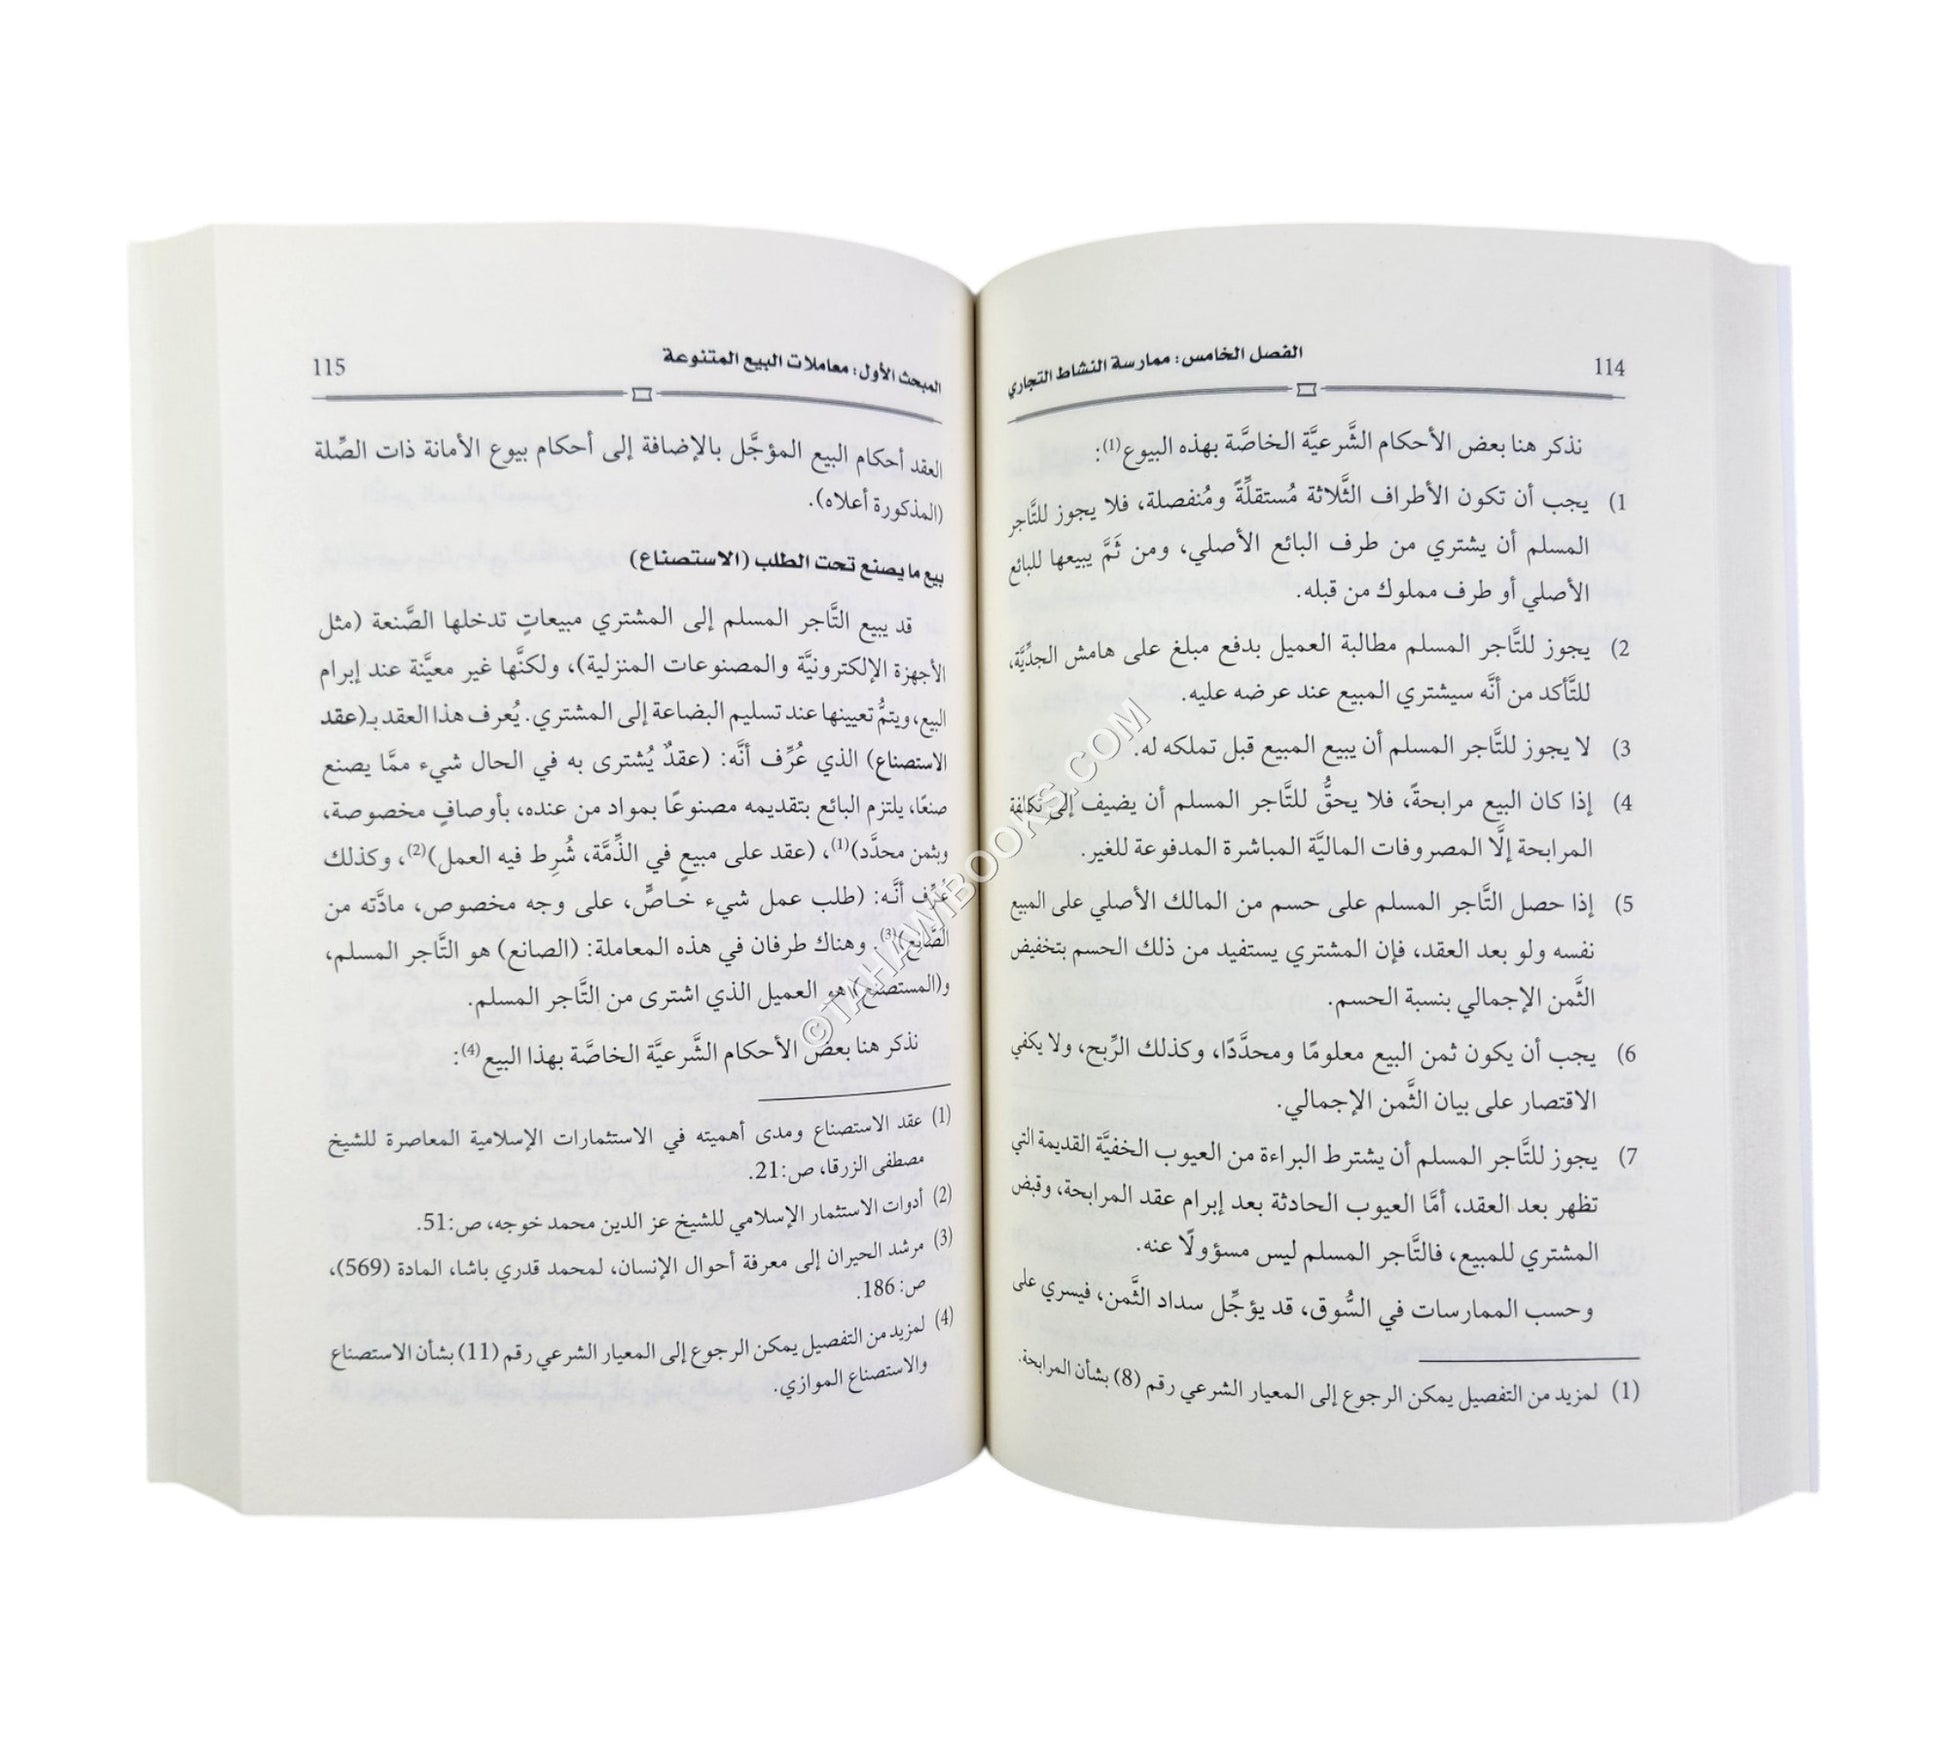 114
الفصل الخامس: ممارسة النشاط التجاري
نذكر هنا بعض الأحكام الشَّرعيَّة الخاصَّة بهذه البيوع(1):
1) يجب أن تكون الأطراف الثَّلاثة مُستقلِّةً ومُنفصلة، فلا يجوز للتَّاجر
المسلم أن يشتري من طرف البائع الأصلي، ومن ثَمَّ يبيعها للبائع
الأصلي أو طرف مملوك من قبله.
2) يجوز للتَّاجر المسلم مطالبة العميل بدفع مبلغ على هامش الجدِّيَّة،
للتَّأكد من أنَّه سيشتري المبيع عند عرضه عليه.
3) لا يجوز للتَّاجر المسلم أن يبيع المبيع قبل تملكه له.
4) إذا كان البيع مرابحةً، فلا يحقُّ للتَّاجر المسلم أن يضيف إلى تكلفة
المرابحة إلَّا المصروفات الماليَّة المباشرة المدفوعة للغير.
5) إذا حصل التَّاجر المسلم على حسم من المالك الأصلي على المبيع
نفسه ولو بعد العقد، فإن المشتري يستفيد من ذلك الحسم بتخفيض
الثَّمن الإجمالي بنسبة الحسم.
6) يجب أن يكون ثمن البيع معلومًا ومحدَّدًا، وكذلك الرِّبح، ولا يكفي
الاقتصار على بيان الثَّمن الإجمالي.
7) يجوز للتَّاجر المسلم أن يشترط البراءة من العيوب الخفيَّة القديمة التي
تظهر بعد العقد، أمَّا العيوب الحادثة بعد إبرام عقد المرابحة، وقبض
المشتري للمبيع، فالتَّاجر المسلم ليس مسؤولًا عنه.
وحسب الممارسات في السُّوق، قد يؤجِّل سداد الثَّمن، فيسري على
(1) لمزيد من التفصيل يمكن الرجوع إلى المعيار الشرعي رقم (8) بشأن المرابحة.
المبحث الأول: معاملات البيع المتنوعة
115
العقد أحكام البيع المؤجَّل بالإضافة إلى أحكام بيوع الأمانة ذات الصِّلة
(المذكورة أعلاه).
بيع ما يصنع تحت الطلب (الاستصناع)
قد يبيع التَّاجر المسلم إلى المشتري مبيعاتٍ تدخلها الصَّنعة (مثل
الأجهزة الإلكترونيَّة والمصنوعات المنزلية)، ولكنَّها غير معيَّنة عند إبرام
البيع، ويتمُّ تعيينها عند تسليم البضاعة إلى المشتري. يُعرف هذا العقد بـ(عقد
الاستصناع) الذي عُرِّف أنَّه: (عقدٌ يُشترى به في الحال شيء ممَّا يصنع
صنعًا، يلتزم البائع بتقديمه مصنوعًا بمواد من عنده، بأوصافٍ مخصوصة،
وبثمن محدَّد)(1)، (عقد على مبيعٍ في الذِّمَّة، شُرِط فيه العمل)(2)، وكذلك
عُرِّف أنَّه: (طلب عمل شيء خاصٍّ، على وجه مخصوص، مادَّته من
الصَّانع)(3). وهناك طرفان في هذه المعاملة: (الصانع) هو التَّاجر المسلم،
و(المستصنع) هو العميل الذي اشترى من التَّاجر المسلم.
نذكر هنا بعض الأحكام الشَّرعيَّة الخاصَّة بهذا البيع(4):
(1) عقد الاستصناع ومدى أهميته في الاستثمارات الإسلامية المعاصرة للشيخ
مصطفى الزرقا، ص:21.
(2) أدوات الاستثمار الإسلامي للشيخ عز الدين محمد خوجه، ص:51.
(3) مرشد الحيران إلى معرفة أحوال الإنسان، لمحمد قدري باشا، المادة (569)،
ص:186.
(4) لمزيد من التفصيل يمكن الرجوع إلى المعيار الشرعي رقم (11) بشأن الاستصناع
والاستصناع الموازي.
©TAHAWIBOOKS.COM